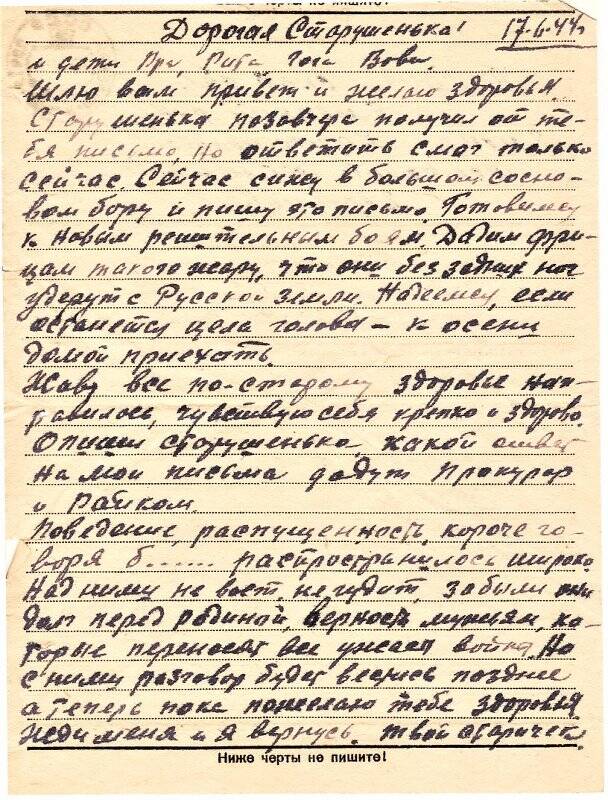 Дорогая Старушенька! 17-6-44г
и дети Ира, Рита Гога Вова.
Шлю вам привет и желаю здоровья.
Старушенька позавчера получил от те-
бя письмо, но ответить смог только
сейчас. Сейчас сижу в большом сосно-
вом бору и пишу это письмо. Готовимся
к новым решительным боям. Дадим фри-
цам такого жару, что они без задних ног
удерут с Русской земли. Надеемся, если
останется цела голова – к осени
домой приехать.
Живу все по-старому здоровье нап-
равилось, чувствую себя крепко и здорово.
Опиши старушенька, какой ответ
на мои письма дадут Прокурор
и Райком.
Поведение, распущенность, короче го-
воря б...... распространилось широко.
Над ними не вост, не гудит, забыли они
долг перед родиной, верность мужьям, ко-
торые переносят все ужасы войны. Но
с ними разговор будет вестись позднее
а теперь пока пожелаю тебе здоровья
Жди меня и я вернусь. твой старичек.
Ниже черты не пишите!